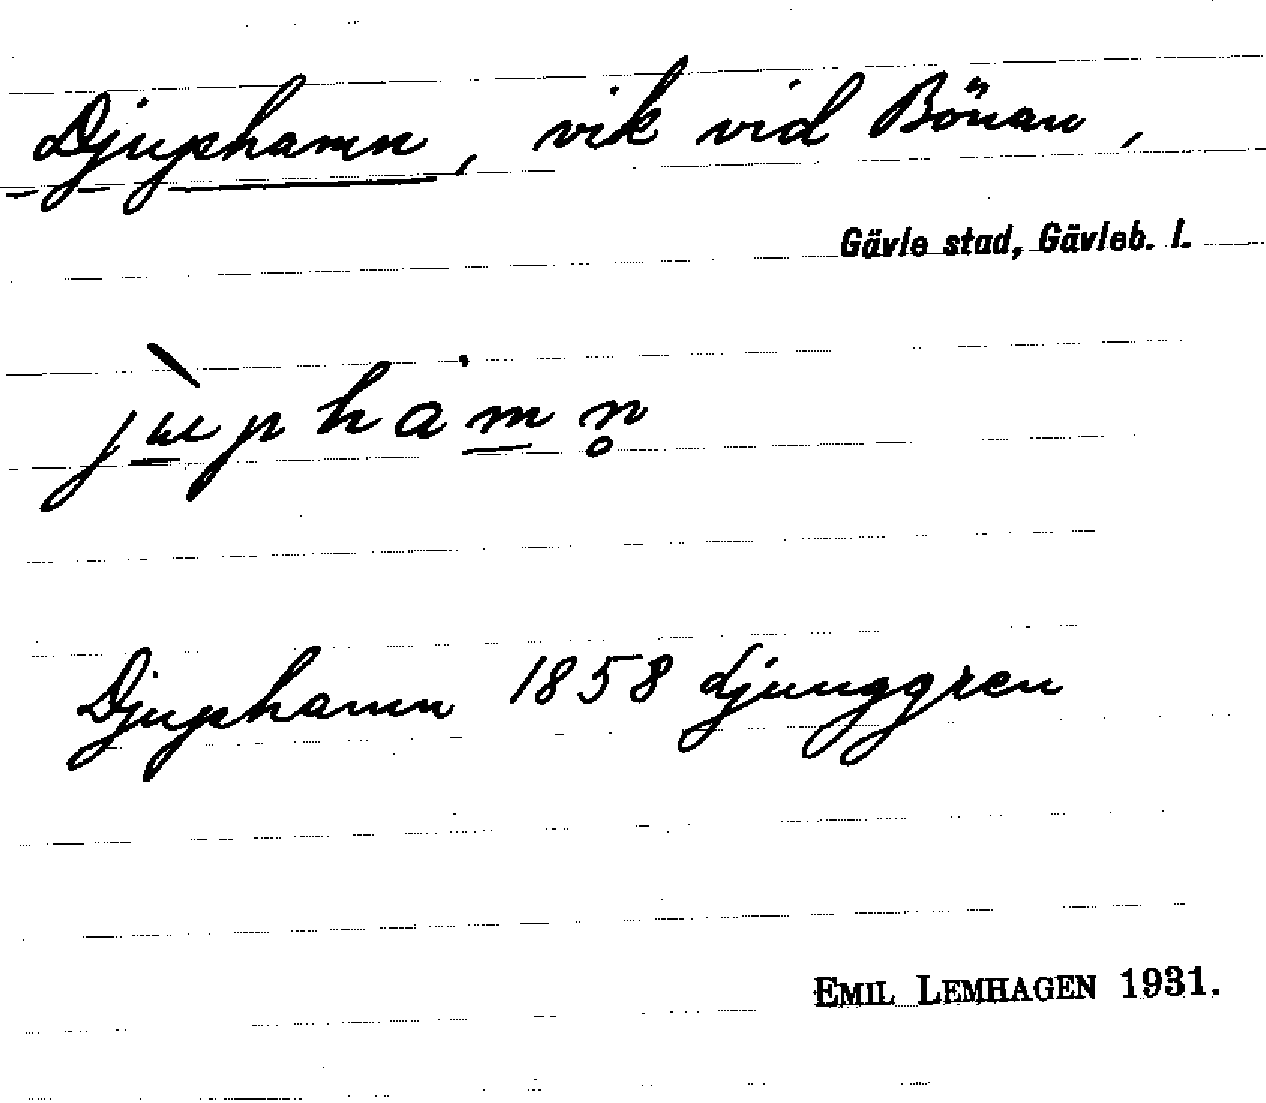 Djuphamn, vik vid Bönan,
Gävle stad, Gävleb. l.
jùphamn̥
Djuphamn 1858 Ljunggren
EMIL LEMHAGEN 1931.